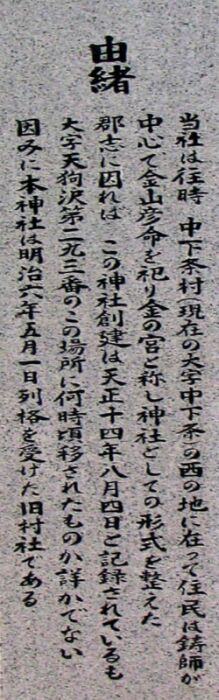 由緒
当社は往時 中下条村(現在の大字中下条)の西の地に在って住民は鋳師が
中心で金山彦命を祀り金の宮と称し神社としての形式を整えた
郡志に因れば この神社創建は天正十四年八月四日と記録されているも
大字天狗沢第二九三番のこの場所に何時頃移されたものか詳かでない
因みに本神社は明治六年五月一日列格を受けた旧村社である